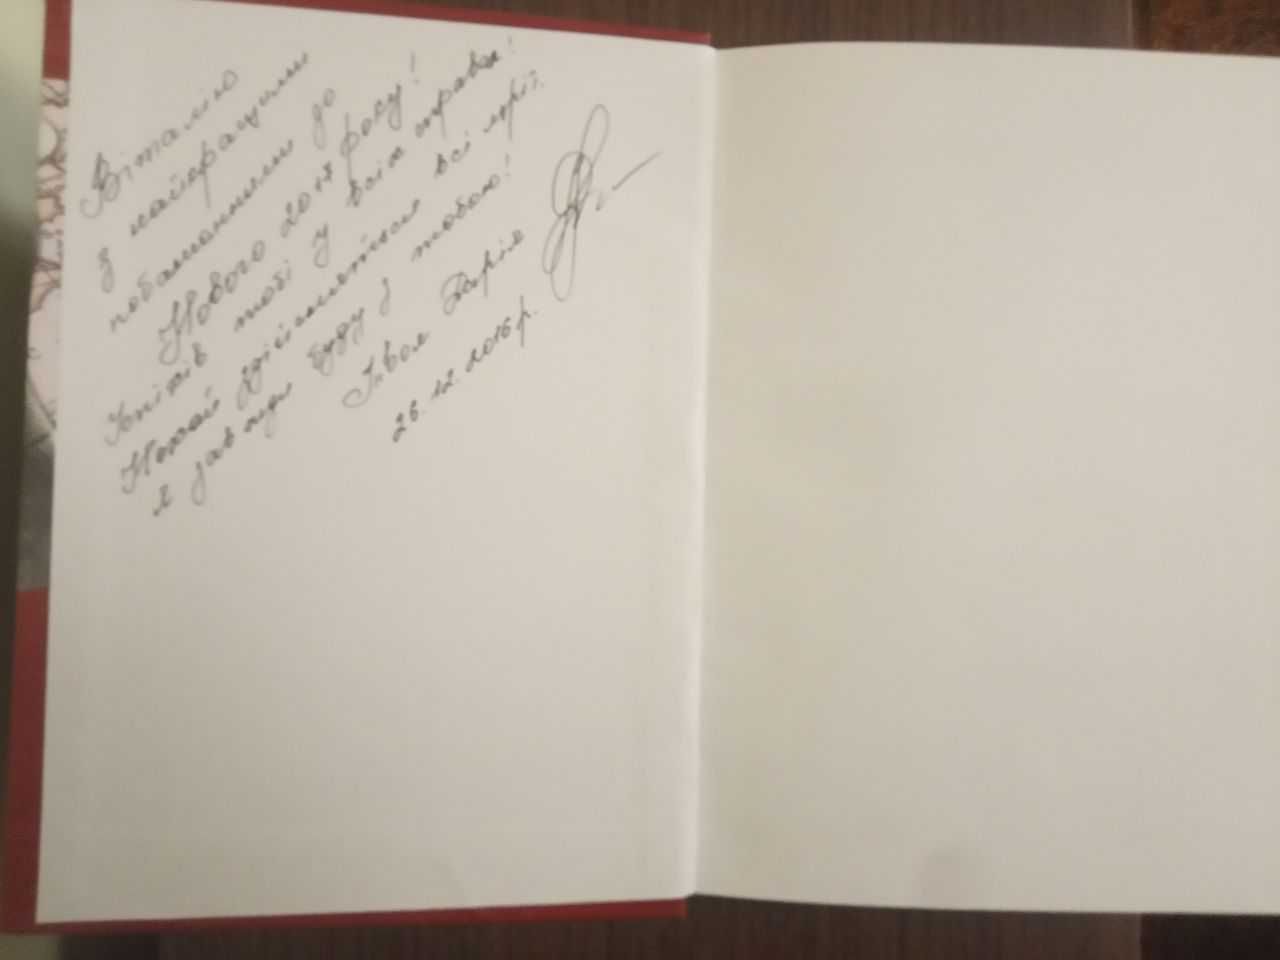 Віталію
з найкращими
побажаннями до
Нового 2017 року!
Успіхів тобі у всіх справах!
Нехай здійсняться всі мрії,
я завжди буду з тобою!
Твоя Дарія
26.12.2016 р.